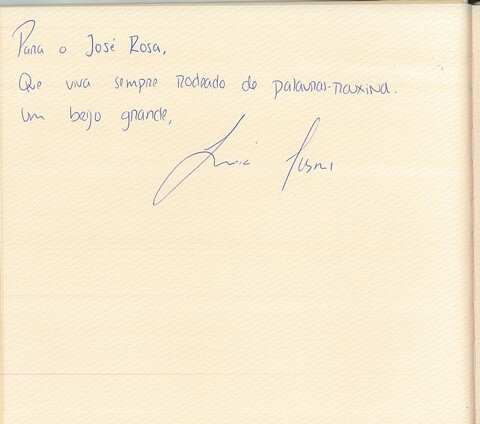 Para o José Rosa,
Que viva sempre rodeado de palavras-rouxinol.
Um beijo grande,